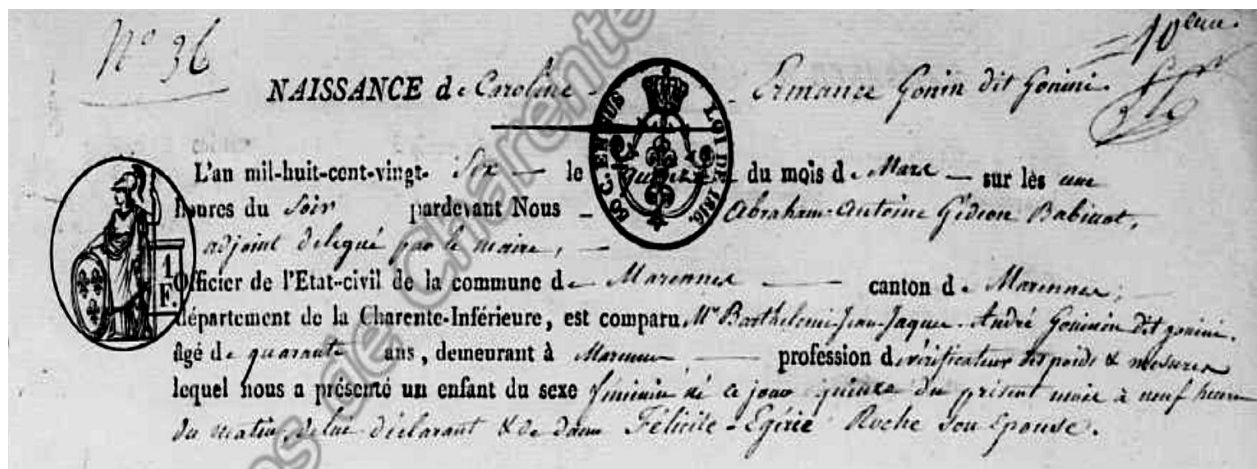 N° 36
10 ème
NAISSANCE de Caroline - Ermance Gonin dit Gonini.
60 C. EN PUS LOI DE 1816.
L'an mil-huit-cent-vingt- Six — le quinze — du mois de Mars — sur les une
heures du Soir pardevant Nous — Abraham-Antoine Gédéon Babinot,
adjoint délégué par le maire, —
1 F.
Officier de l'Etat-civil de la commune de Marennes — canton de Marennes,
département de la Charente-Inférieure, est comparu Mr Barthelemi-Jean-Jaques-André Gonin dit gonini.
âgé de quarante ans, demeurant à Marennes — profession de vérificateur des poids & mesures
lequel nous a présenté un enfant du sexe féminin né ce jour quinze du présent mois à neuf heures
du matin, de lui déclarant & de dame Félicité-Egérie Roche son Epouse.
s de Charente